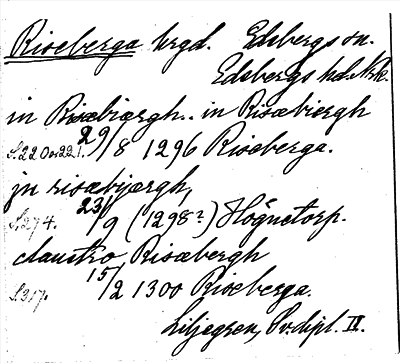 Riseberga hrgd. Edsbergs sn.
Edsbergs hd. Nrk.
in Risæbiærgh.. in Risæbiergh
S.220o.221. 29/8 1296 Riseberga.
jn risæbijærgh,
S.274. 23/9 (1298?) Högnetorp.
claustro Risæbergh
S.317. 15/2 1300 Riseberga.
Liljegren, Sv. dipl. II.